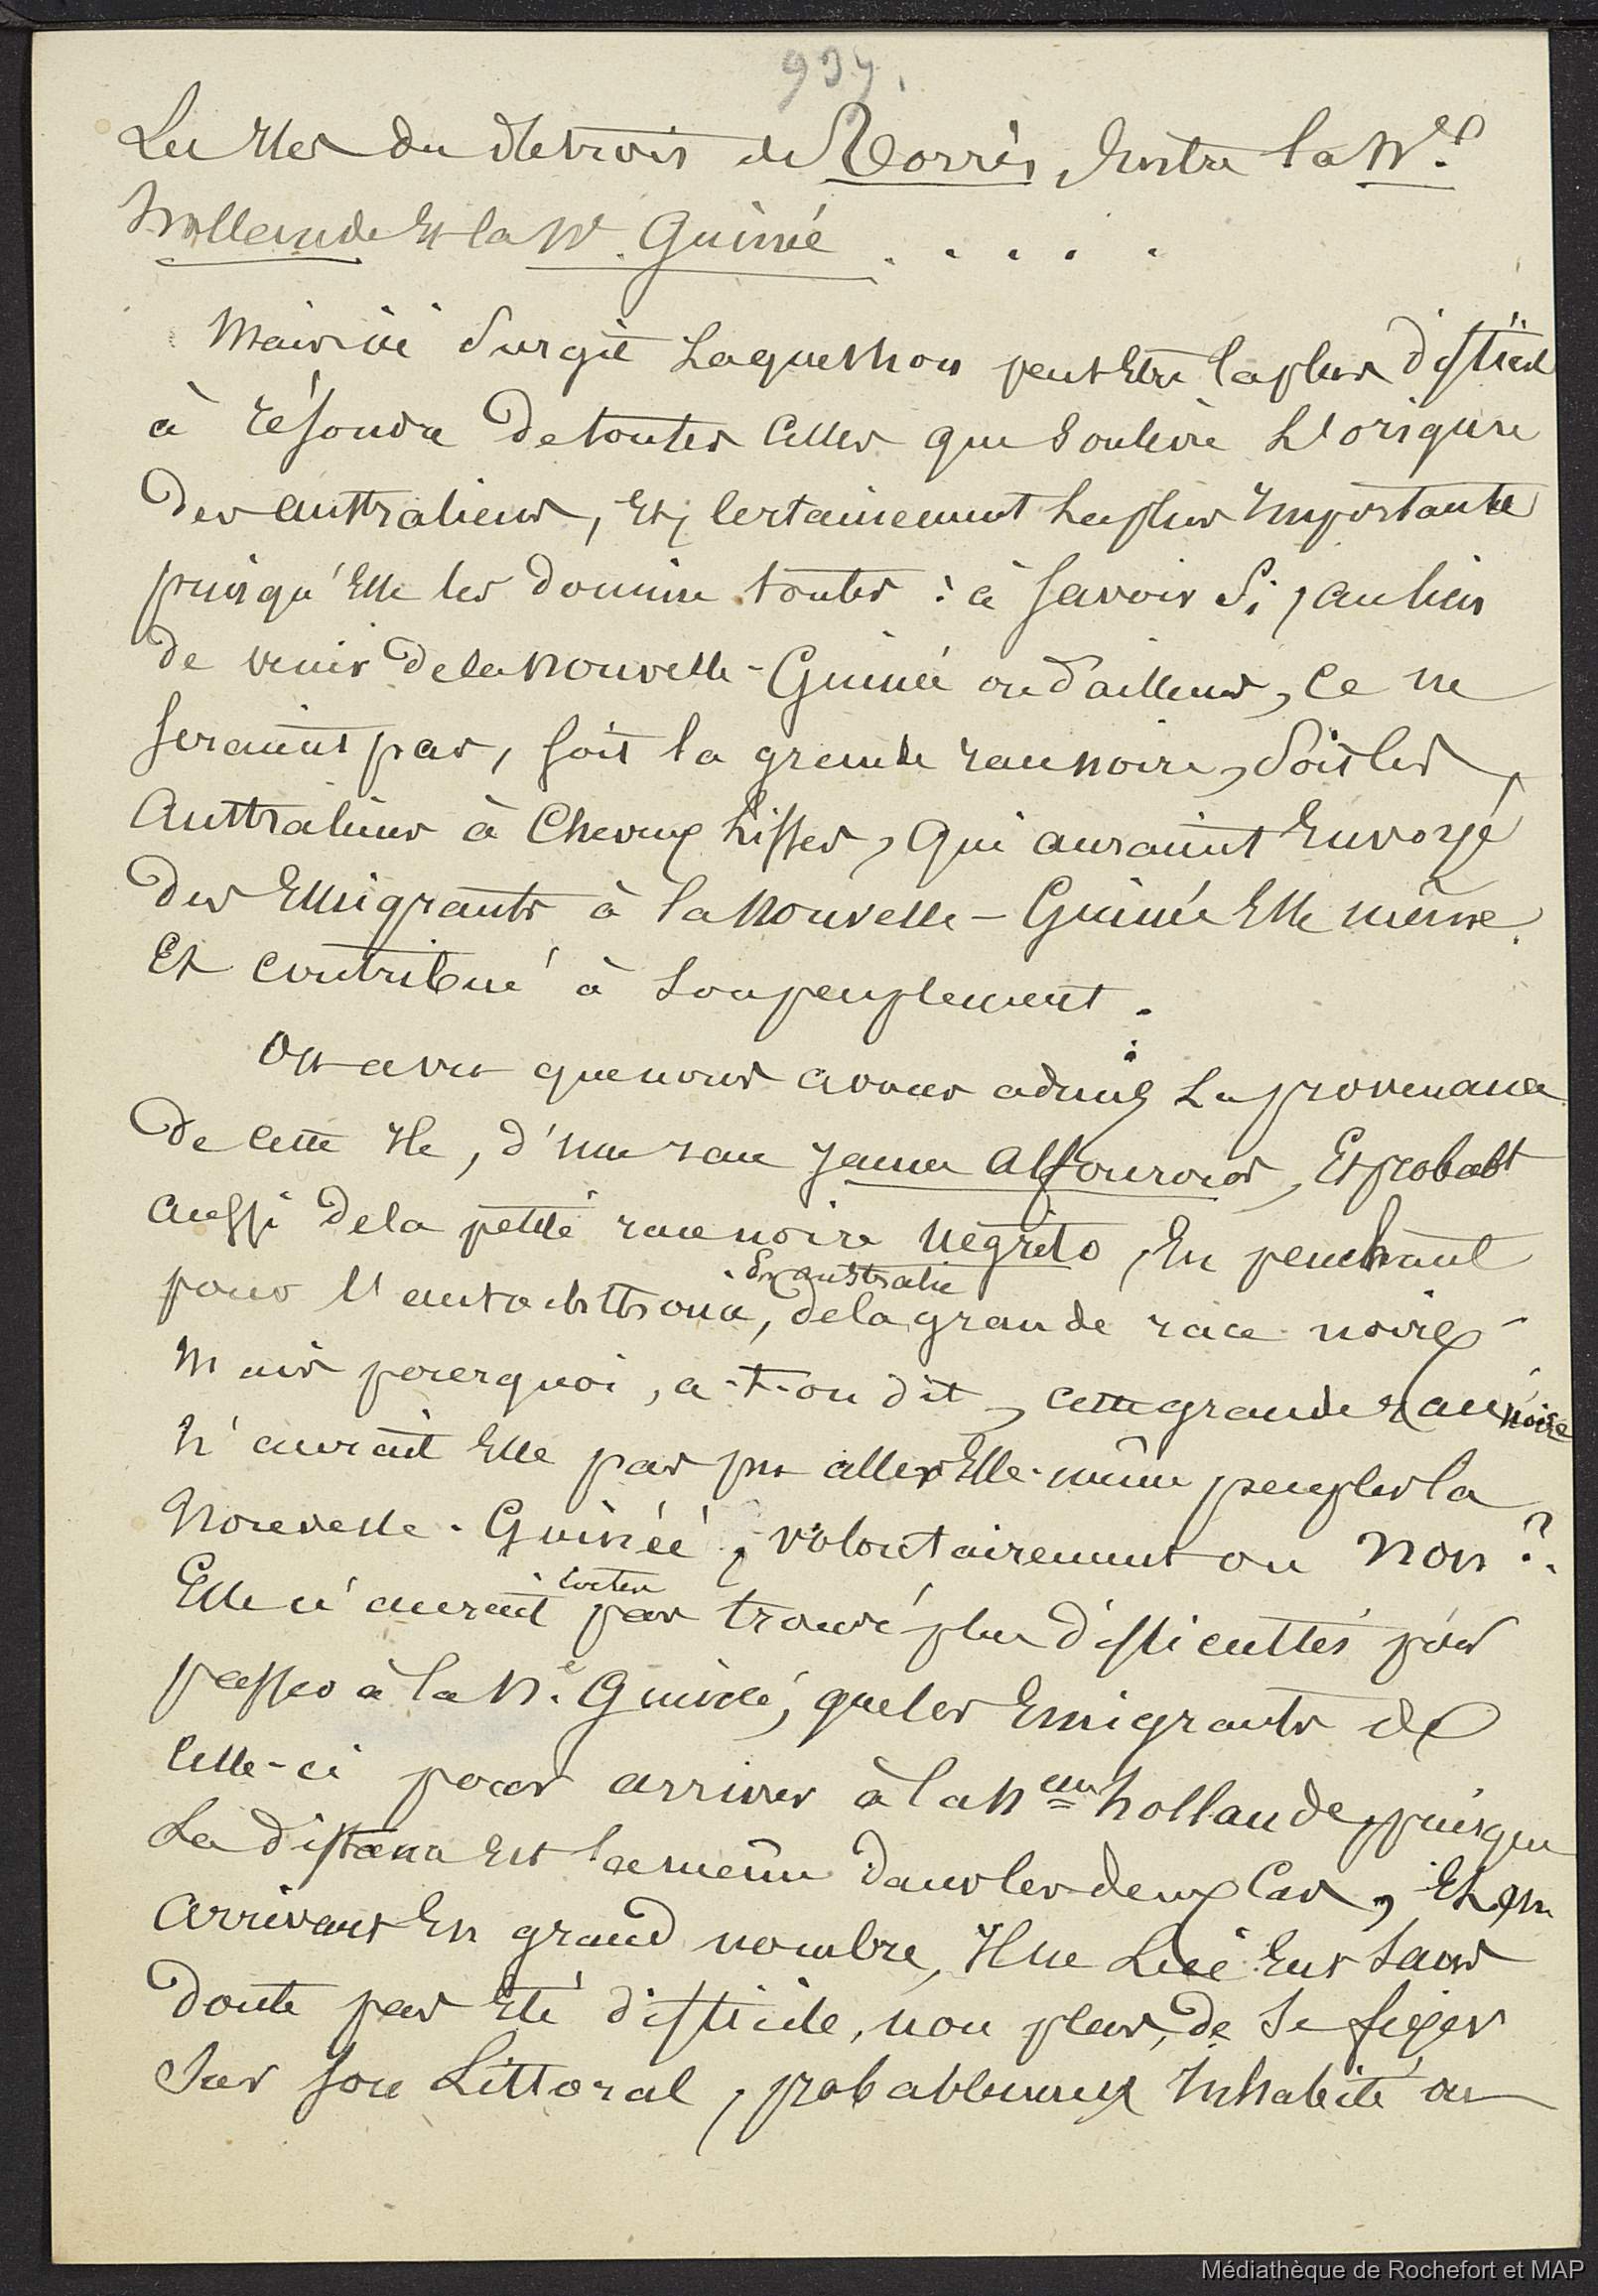 937.
Les Iles du détroit de Torrès, Entre la Nlle
hollande Et la Nle Guinée . . . . .
Mais ici Surgit La question peut Etre la plus difficile
à résoudre de toutes Celles que Soulève L'origine
des australiens, Et, Certainement La plus Importante
puisqu'Elle les domine toutes : à Savoir Si, au lieu
de venir de la nouvelle-Guinée ou d'ailleurs, Ce ne
Seraient pas, Soit la grande race noire, Soit les
Australiens à Cheveux Lisses, Qui auraient Envoyé
des Emigrants à la nouvelle-Guinée Elle même
Et Contribué à Son peuplement.
On a vu que nous avons admis La provenance
de Cette Ile, d'une race jaune Alfourous, Et probabt
aussi de la petite race noire Négrito, En penchant
pour l'autochthonie, En australie de la grande race noire
Mais pourquoi, a-t-on dit, Cette grande race noire
N'aurait Elle pas pu aller Elle-même peupler la
Nouvelle-Guinée, volontairement ou Non ?
Elle n'aurait Certes pas trouvé plus difficultés pour
passer à la Ne Guinée, que les Emigrants de
Celle-ci pour arriver à la Nelle hollande, puisque
La distance Est la même dans les deux Cas, Et, En
arrivant En grand nombre, Il ne Lui Eut Sans
doute pas Eté difficile, non plus, de Se fixer
Sur Son Littoral, probablement Inhabité ou
Médiathèque de Rochefort et MAP